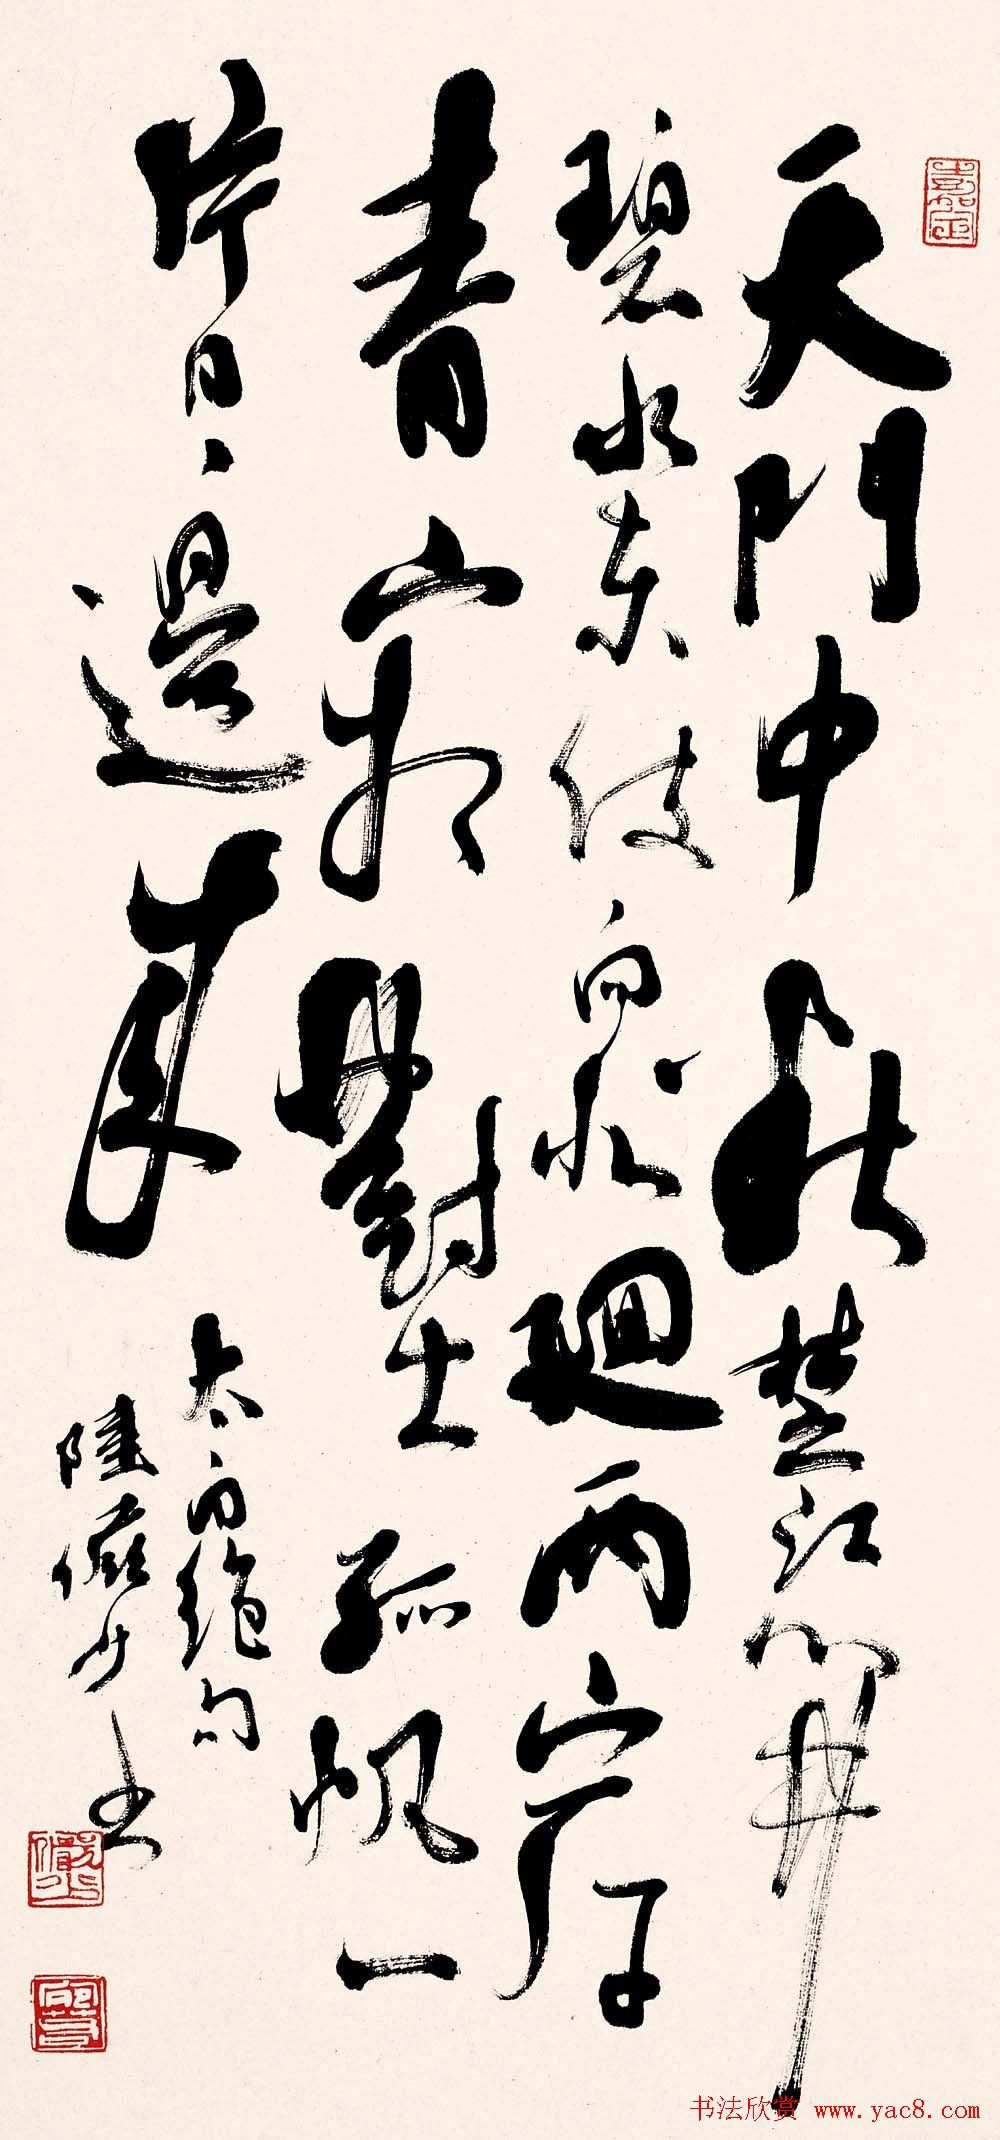 嘉定
天門中斷楚江開
碧水東向廻兩岸
青山相對出孤帆一
片日邊來
太白絕句
陸儼少書
书法欣赏 www.yac8.com